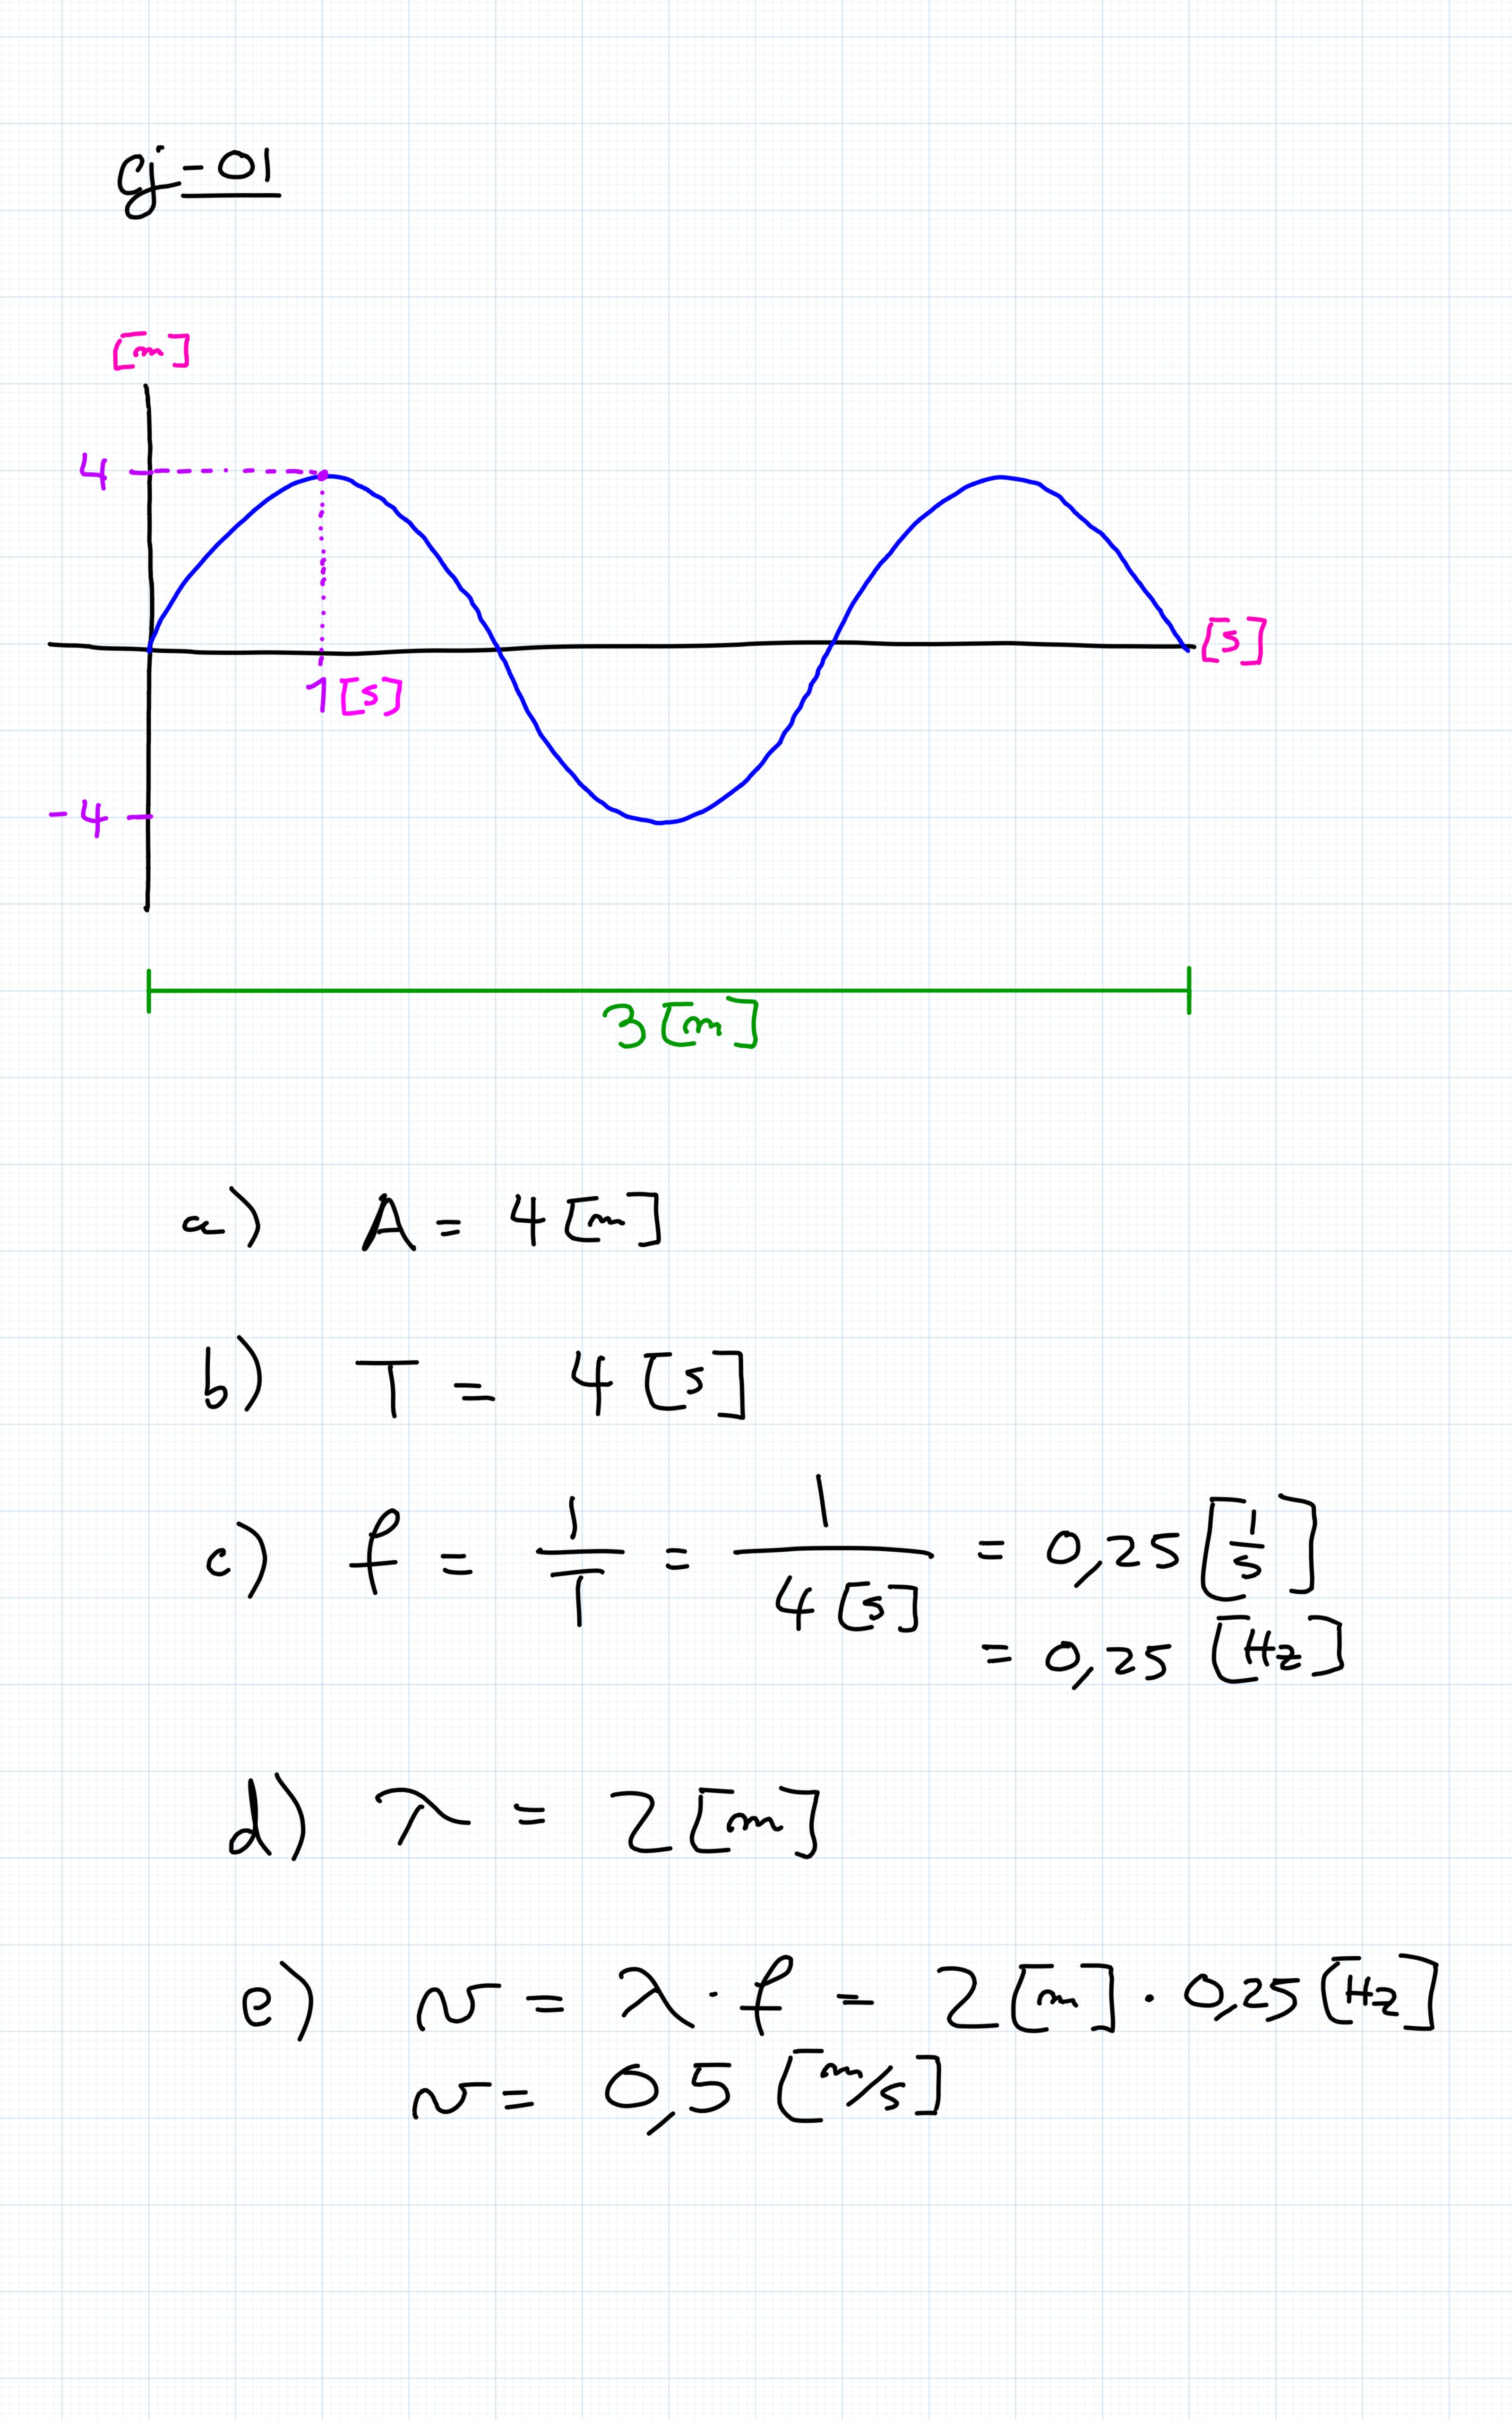 ej-01
[m]
4
[s]
1[s]
-4
3[m]
a) A = 4 [m]
b) T = 4 [s]
c) f = 1/T = 1/4[s] = 0,25 [1/s]
= 0,25 [Hz]
d) λ = 2 [m]
e) v = λ · f = 2 [m] · 0,25 [Hz]
v = 0,5 [m/s]